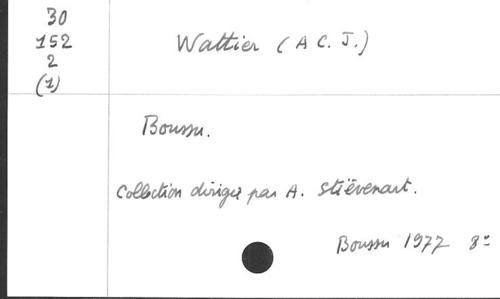 30
152
2
(1)
Wattier (A C. J.)
Boussu.
Collection dirigée par A. Stiévenart.
Boussu 1977 8°